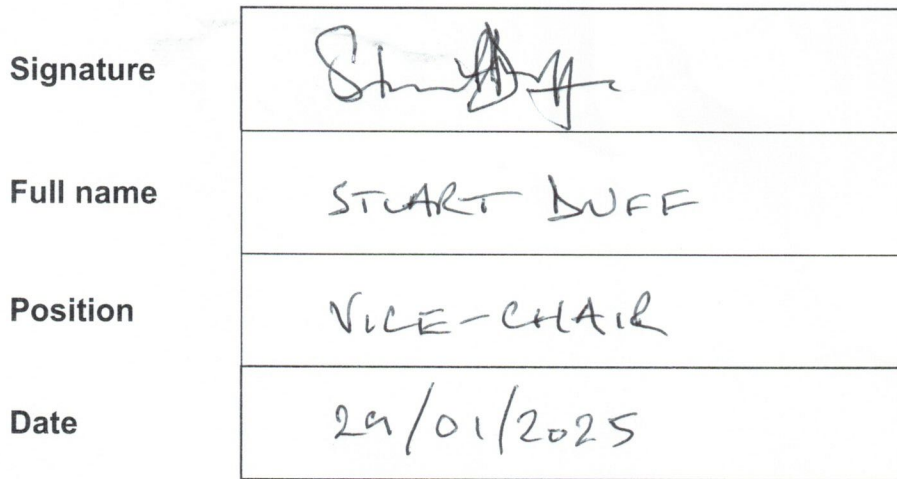 Signature Stuart Duff
Full name STUART DUFF
Position VICE-CHAIR
Date 29/01/2025